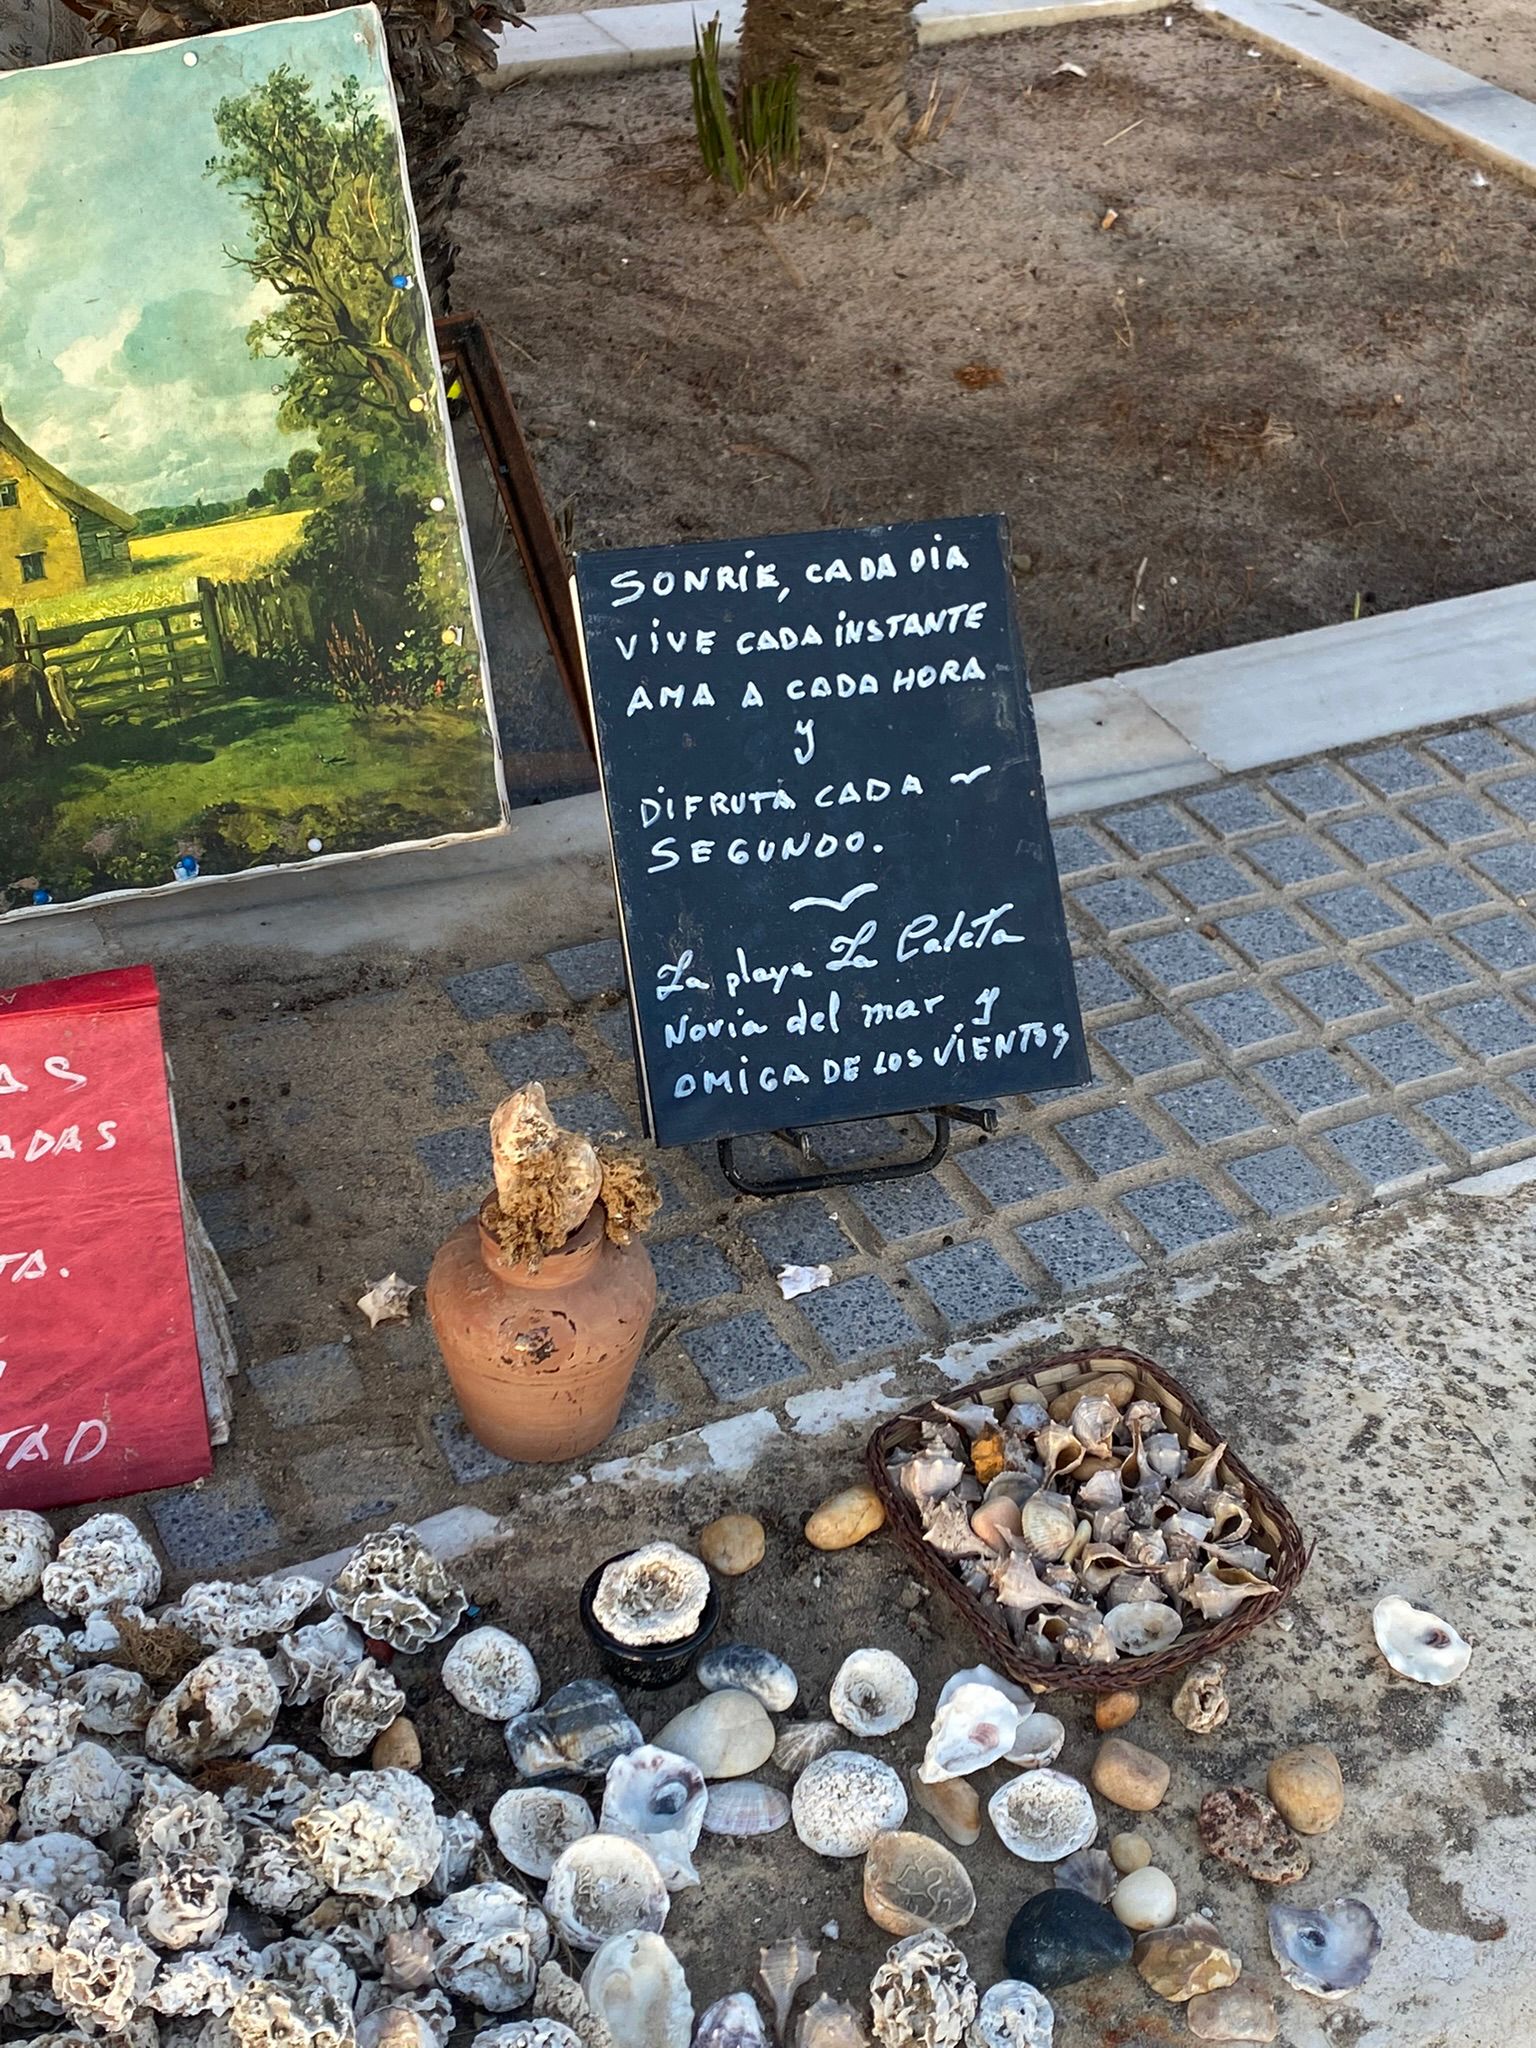 SONRIE, CADA DIA
VIVE CADA INSTANTE
AMA A CADA HORA
Y
DIFRUTA CADA
SEGUNDO.
La playa La Caleta
Novia del mar y
OMIGA DE LOS VIENTOS
AS
ADAS
TA.
TAD